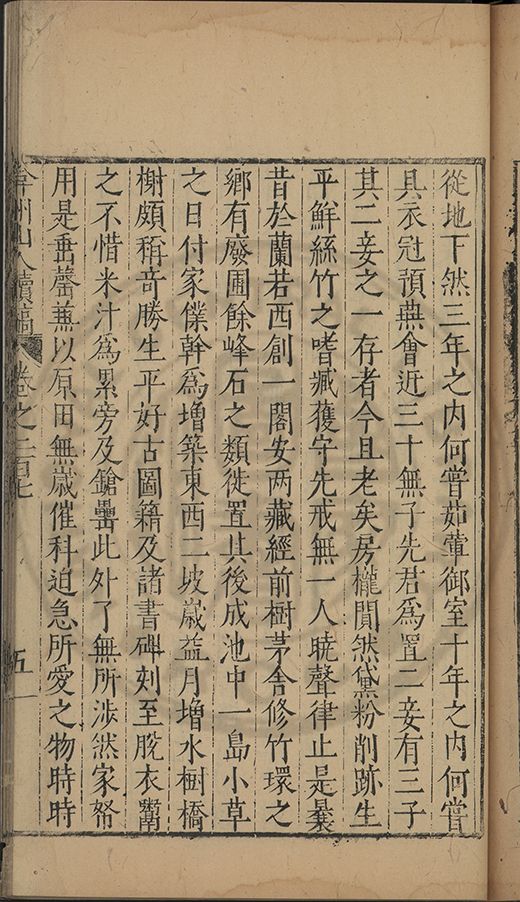 從地下然三年之內何嘗茹葷御室十年之內何嘗
具衣冠預燕會近三十無子先君爲置二妾有三子
其二妾之一存者今且老矣房櫳閴然黛粉削跡生
平鮮絲竹之嗜臧獲守先戒無一人曉聲律止是曩
昔於蘭若西創一閣安两藏經前樹茅舍修竹環之
鄉有廢圃餘峰石之類徙置其後成池中一島小草
之日付家僕幹爲增築東西二坡歲益月增水樹橋
榭頗稱奇勝生平好古圖籍及諸書碑刻至脫衣鬻
之不惜米汁爲累旁及鎗罍此外了無所涉然家帑
用是垂罄兼以原田無歲催科迫急所愛之物時時
弇州山人續稿 卷之二百七 五